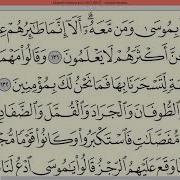 بِمُوسَىٰ وَمَن مَّعَهُۥٓ ۗ أَلَآ إِنَّمَا طَـٰٓئِرُهُمْ عِ
نَّ أَكْثَرَهُمْ لَا يَعْلَمُونَ ١٣١ وَقَالُوا۟ مَهْمَ
ةٍ لِّتَسْحَرَنَا بِهَا فَمَا نَحْنُ لَكَ بِمُؤْمِنِينَ ١٣٢
ٱلطُّوفَانَ وَٱلْجَرَادَ وَٱلْقُمَّلَ وَٱلضَّفَادِ
مُّفَصَّلَـٰتٍ فَٱسْتَكْبَرُوا۟ وَكَانُوا۟ قَوْمًا مُّجْ
وَقَعَ عَلَيْهِمُ ٱلرِّجْزُ قَالُوا۟ يَـٰمُوسَى ٱدْعُ لَنَا